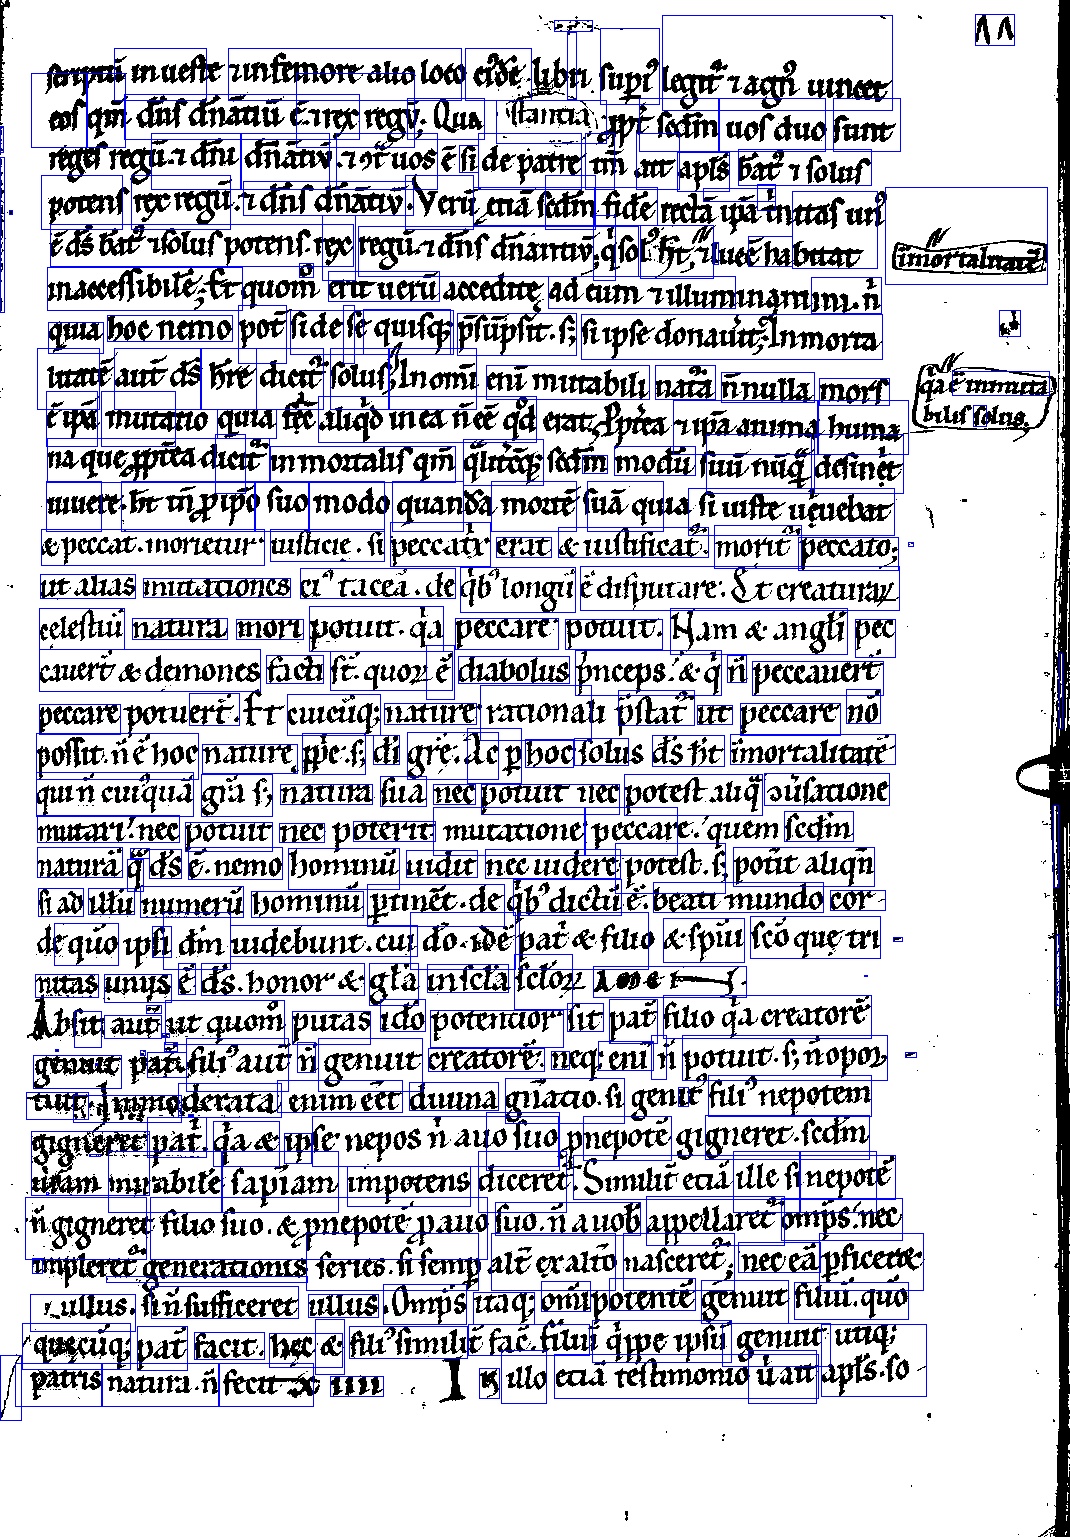 scriptū in ueste ⁊ in femore alio loco eiꝰdē libri suꝑiꝰ legit᷑ ⁊ agnꝰ uincet
eos qm̄ dn̄s dn̄antiū ē ⁊ rex regū. Qua stantia ꝓpt̄ scdm̄ uos duo sunt
reges regū ⁊ dn̄i dn̄antiū ⁊ uos ē si de patre tm̄ ait apls̄ bat᷑ ⁊ solus
potens rex regū ⁊ dn̄s dn̄antiū. Verū etiā scdm̄ fidē rectā ipā t̄nitas unꝰ
ē ds̄ bat᷑ ⁊ solus potens. rex regū ⁊ dn̄s dn̄antiū, q̄ solꝰ ht̄ ⁊ lucē habitat
īmortalitatē
inaccessibilē; Et quom̄ erit uerū accedite ad eum ⁊ illuminamini. n̄
quia hoc nemo pot̄ si de se quisq; p̄sūpsit. s; si ipse donauit; Inmorta
litatē aut̄ ds̄ hr̄e dicit᷑ solus, In omī enī mutabili natā n̄nulla mors
q̄a ē inmuta
bilis solus.
ē ipā mutatio quia fēc aliqd̄ in ea n̄ eē qd̄ erat. Ꝓpt̄ea ⁊ ipā anima huma
na que ꝓpt̄ea dicit᷑ inmortalis qm̄ q̄litcūq; scdm̄ modū suū nūq̄ desinet
uiuere. ht̄ tn̄ ꝓ ip̄o suo modo quandā mortē suā quia si iuste uiuebat
& peccat. morietur iusticie. si peccatꝝ erat & iustificat᷑. morit᷑ peccato;
ut alias mutationes eiꝰ taceā. de qb̄ꝰ longū ē disputare. Et creaturaꝝ
celestiū natura mori potuit. q̄a peccare potuit. Nam & angli̅ pec
cauert̄ & demones facti st̄. quoꝝ ē diabolus p̄nceps. & q̄ n̄ peccauert̄
peccare potuert̄. Et cuicūq; nature rationali p̄stat᷑ ut peccare nō
possit. n̄ ē hoc nature ꝓpe. s; di gr̄e. Ac ꝑ hoc solus ds̄ ht̄ īmortalitatē
qui n̄ cuiꝰquā gr̄a s; natura sua nec potuit nec potest aliq̄ ɔūsatione
mutari. nec potuit nec poterit mutatione peccare. quem scdm̄
naturā q̄ ds̄ ē. nemo hominū uidit nec uidere potest. s; potit aliqn̄
si ad illū numerū hominū ꝑtinēt. de qb̄ꝰ dictū ē. beati mundo cor
de qūo ipsi dm̄ uidebunt. cui dō. idē pat᷑ & filio & spūi scō que tri
nitas unus ē ds̄. honor & gl̄a in scl̄a scl̄oꝝ amen.
Absit aut̄ ut quom̄ putas idō potentior sit pat᷑ filio q̄a creatorē
genuit pat᷑. filiꝰ aut̄ n̄ genuit creatorē. neq; enī n̄ potuit. s; n̄ opoꝝ
tuit. Immoderata enim eēt diuina gn̄atio. si genitꝰ filiꝰ nepotem
gigneret pat᷑. q̄a & ipse nepos n̄ auo suo pnepotē gigneret. scdm̄
ur̄am mirabilē sapīam impotens diceret᷑. Similit̄ etiā ille si nepotē
n̄ gigneret filio suo. & pnepotē ꝓauo suo. n̄ a uob̄ appellaret᷑ omp̄s. nec
impleret᷑ generationis series. si semp̄ alt̄ ex alto nasceret᷑; nec eā ꝑficeret
ullus. si n̄ sufficeret ullus. Omp̄s itaq; omīpotentē genuit filiū. quō
quecūq; pat᷑ facit. hec & filiꝰ similit̄ fac̄. filiū q̄ppe ipsiꝰ genuit utiq;
patris natura. n̄ fecit xiiii In illo etiā testimonio ū ait apls̄. so